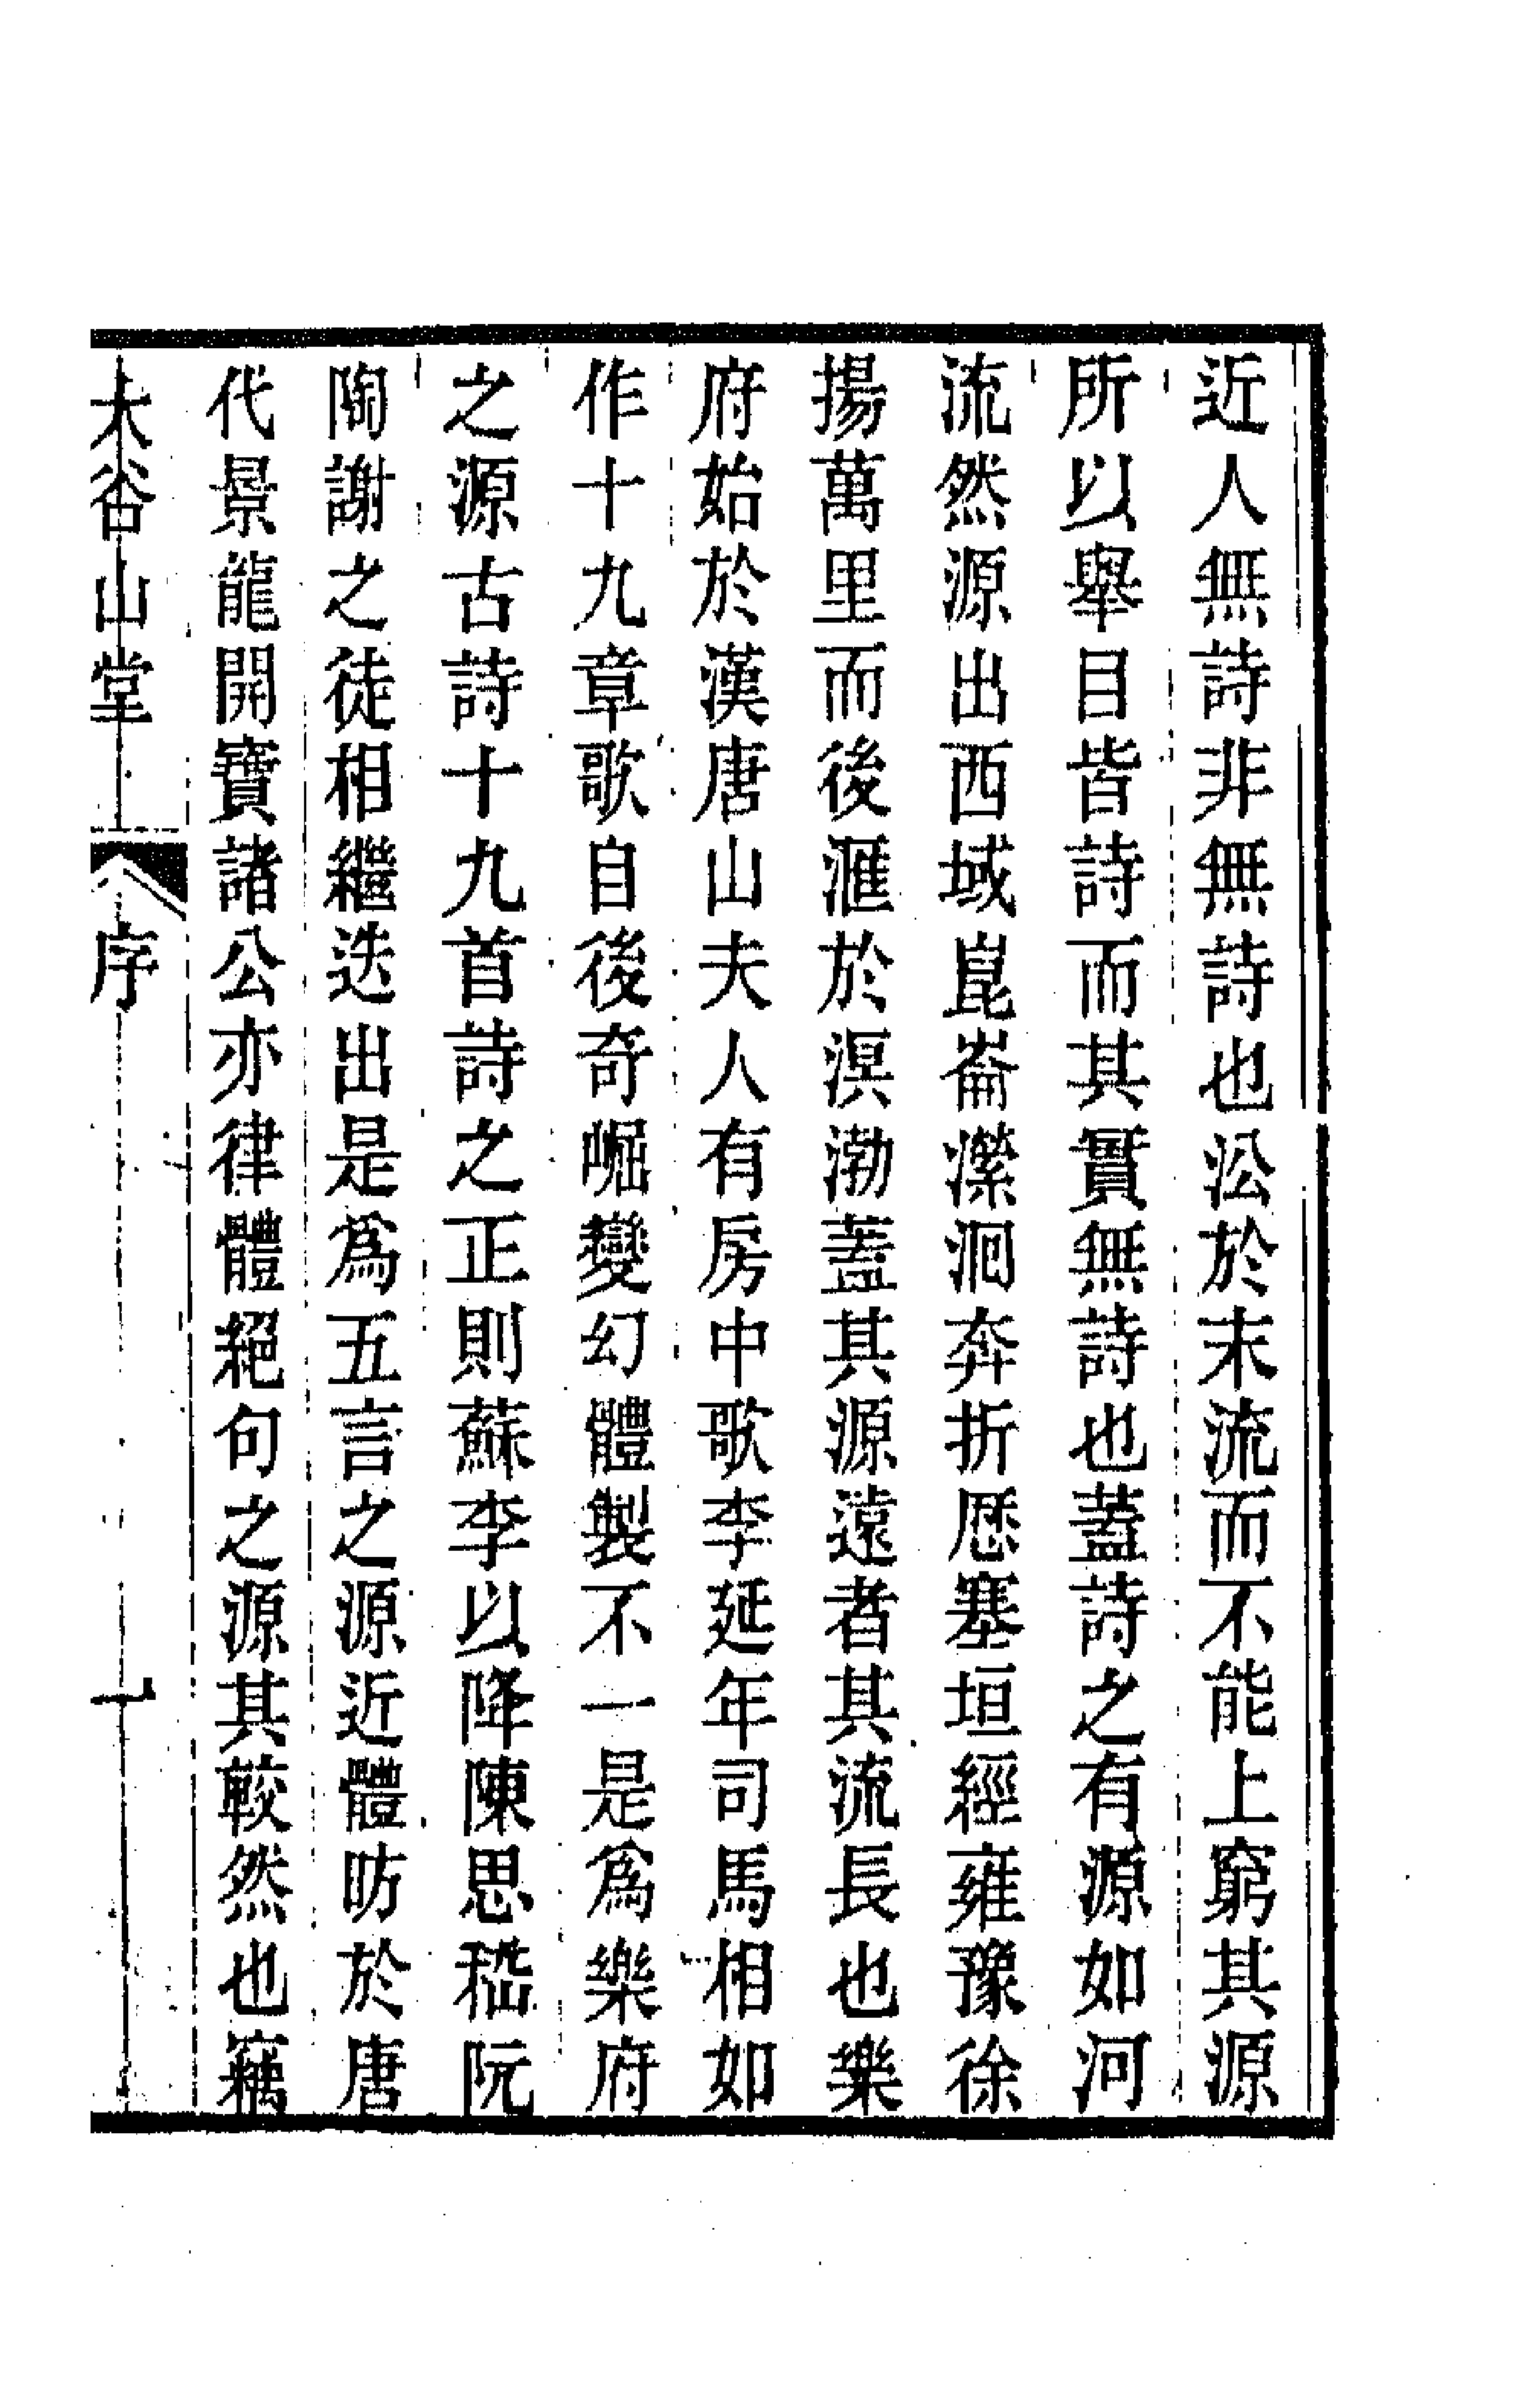 近人無詩非無詩也㳂於末流而不能上窮其源
所以舉目皆詩而其實無詩也蓋詩之有源如河
流然源出西域崑崙瀠洄奔折歷塞垣經雍豫徐
揚萬里而後滙於溟渤蓋其源遠者其流長也樂
府始於漢唐山夫人有房中歌李延年司馬相如
作十九章歌自後奇崛變幻體製不一是爲樂府
之源古詩十九首詩之正則蘇李以降陳思嵇阮
陶謝之徒相繼迭出是爲五言之源近體昉於唐
代景龍開寶諸公亦律體絕句之源其較然也竊
大谷山堂
序
一